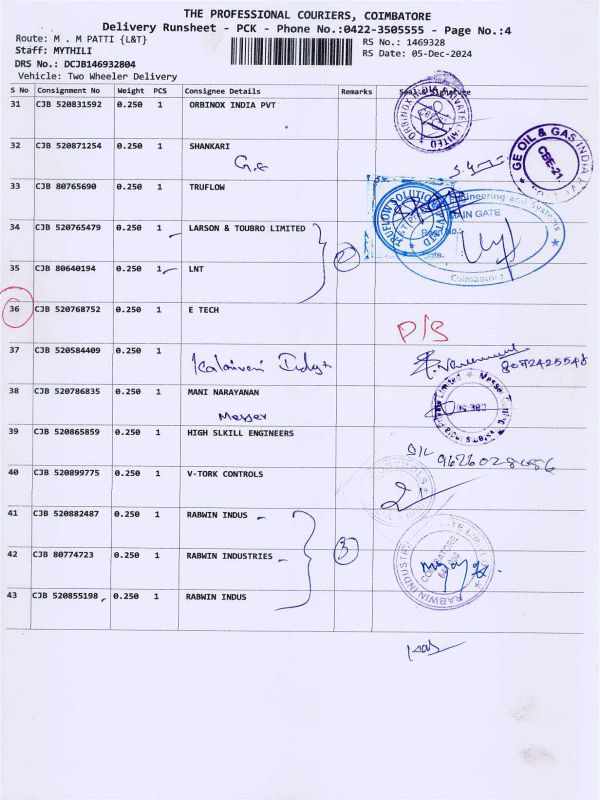 THE PROFESSIONAL COURIERS, COIMBATORE
Delivery Runsheet - PCK - Phone No.:0422-3505555 - Page No.:4
Route: M . M PATTI {L&T}
RS No.: 1469328
Staff: MYTHILI
RS Date: 05-Dec-2024
DRS No.: DCJB146932804
Vehicle: Two Wheeler Delivery
S No Consignment No Weight PCS Consignee Details Remarks Seal & Signature
31 CJB 520831592 0.250 1 ORBINOX INDIA PVT
ORBINOX INDIA PRIVATE LIMITED
32 CJB 520871254 0.250 1 SHANKARI
G.e
GE OIL & GAS INDIA PVT
CBE-21
33 CJB 80765690 0.250 1 TRUFLOW
TRUFLOW SOLUTIONS PVT LTD
Engineering and Systems
MAIN GATE
Date.
Coimbatore
34 CJB 520765479 0.250 1 LARSON & TOUBRO LIMITED
2
35 CJB 80640194 0.250 1 LNT
36 CJB 520768752 0.250 1 E TECH
P/S
37 CJB 520584409 0.250 1
Kalaivani Indus
8072425548
38 CJB 520786835 0.250 1 MANI NARAYANAN
Messer
39 CJB 520865859 0.250 1 HIGH SLKILL ENGINEERS
40 CJB 520899775 0.250 1 V-TORK CONTROLS
41 CJB 520882487 0.250 1 RABWIN INDUS
42 CJB 80774723 0.250 1 RABWIN INDUSTRIES
3
RABWIN INDUSTRIES
COIMBATORE
43 CJB 520855198 0.250 1 RABWIN INDUS